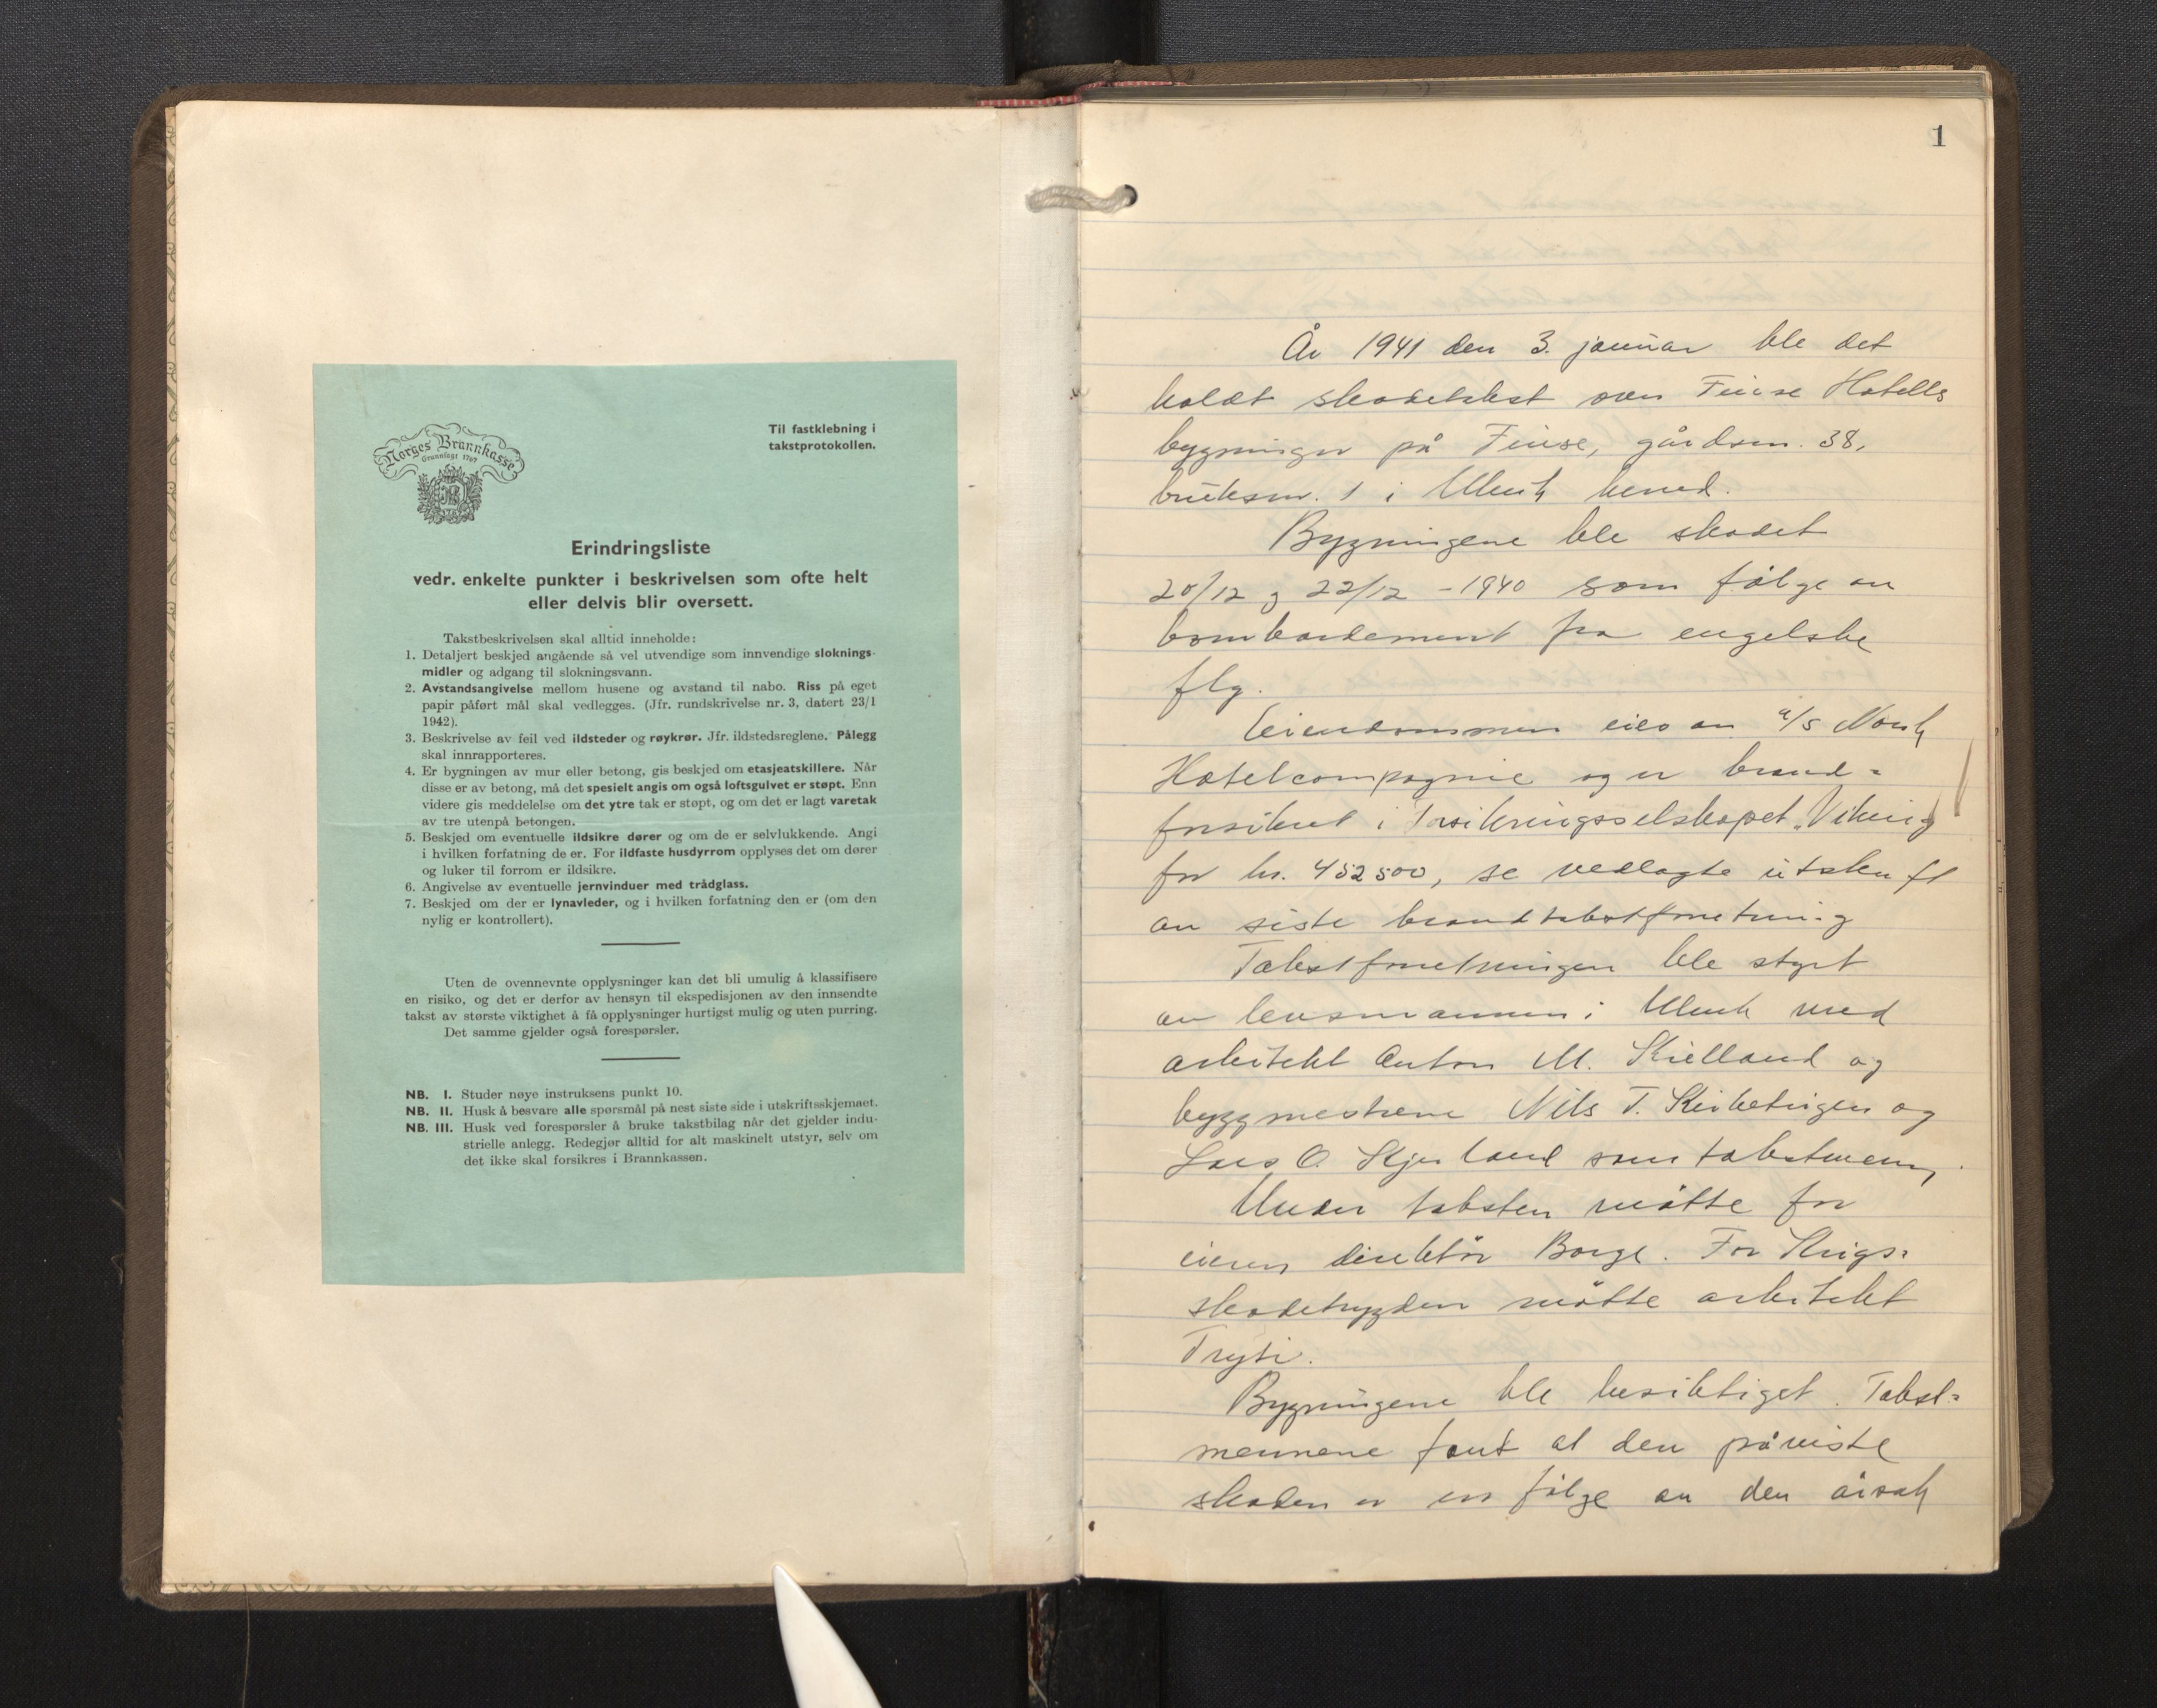 Norges Brannkasse
Grunnlagt 1767
Til fastklebning i
takstprotokollen.
Erindringsliste
vedr. enkelte punkter i beskrivelsen som ofte helt
eller delvis blir oversett.
Takstbeskrivelsen skal alltid inneholde:
1. Detaljert beskjed angående så vel utvendige som innvendige sloknings-
midler og adgang til slokningsvann.
2. Avstandsangivelse mellom husene og avstand til nabo. Riss på eget
papir påført mål skal vedlegges. (Jfr. rundskrivelse nr. 3, datert 23/1
1942).
3. Beskrivelse av feil ved ildsteder og røykrør. Jfr. ildstedsreglene. Pålegg
skal innrapporteres.
4. Er bygningen av mur eller betong, gis beskjed om etasjeatskillere. Når
disse er av betong, må det spesielt angis om også loftsgulvet er støpt. Enn
videre gis meddelelse om det ytre tak er støpt, og om det er lagt varetak
av tre utenpå betongen.
5. Beskjed om eventuelle ildsikre dører og om de er selvlukkende. Angi
i hvilken forfatning de er. For ildfaste husdyrrom opplyses det om dører
og luker til forrom er ildsikre.
6. Angivelse av eventuelle jernvinduer med trådglass.
7. Beskjed om der er lynavleder, og i hvilken forfatning den er (om den
nylig er kontrollert).
Uten de ovennevnte opplysninger kan det bli umulig å klassifisere
en risiko, og det er derfor av hensyn til ekspedisjonen av den innsendte
takst av største viktighet å få opplysninger hurtigst mulig og uten purring.
Det samme gjelder også forespørsler.
NB. I. Studer nøye instruksens punkt 10.
NB. II. Husk å besvare alle spørsmål på nest siste side i utskriftsskjemaet.
NB. III. Husk ved forespørsler å bruke takstbilag når det gjelder indu-
strielle anlegg. Redegjør alltid for alt maskinelt utstyr, selv om
det ikke skal forsikres i Brannkassen.
1
År 1941 den 3. januar ble det
holdt skadetakst over Finse Hotells
bygninger på Finse, gårdsnr. 38,
bruksnr. 1 i Ulvik herred.
Bygningene ble skadet
20/12 og 22/12 - 1940 som følge av
bombardement fra engelske
fly.
Eiendommen eies av a/s Norsk
Hotelcompagnie og er brand=
forsikret i Forsikringsselskapet "Viking
for kr. 452500, se vedlagte utskrift
av siste brandtakstforretning
Takstforretningen ble styrt
av lensmannen i Ulvik med
arkitekt Anton M. Kielland og
byggmestrene Nils T. Kirketeigen og
Lars O. Skjerland som takstmenn,
Under taksten møtte for
eieren direktør Borge. For Krigs=
skadetrygden møtte arkitekt
Tryti.
Bygningene ble besiktiget. Takst=
mennene fant at den påviste
skaden er en følge av den årsak